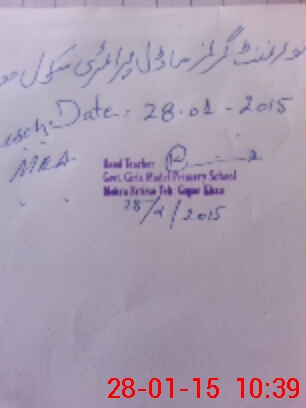 گورنمنٹ گرلز ماڈل پرائمری سکول
Date: 28.01-2015
MEA
Head Teacher
Govt. Girls Model Primary School
Mohra
Teh: Gujar Khan
2015
28-01-15 10:39